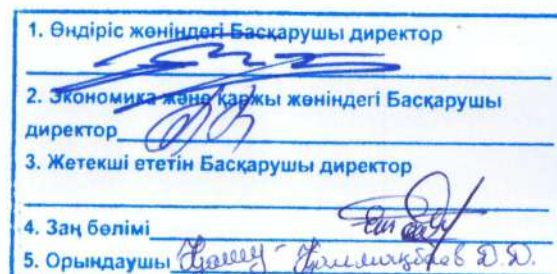 1. Өндіріс жөніндегі Басқарушы директор
2. Экономика және қаржы жөніндегі Басқарушы
директор
3. Жетекші ететін Басқарушы директор
4. Заң бөлімі
5. Орындаушы Д.Д.